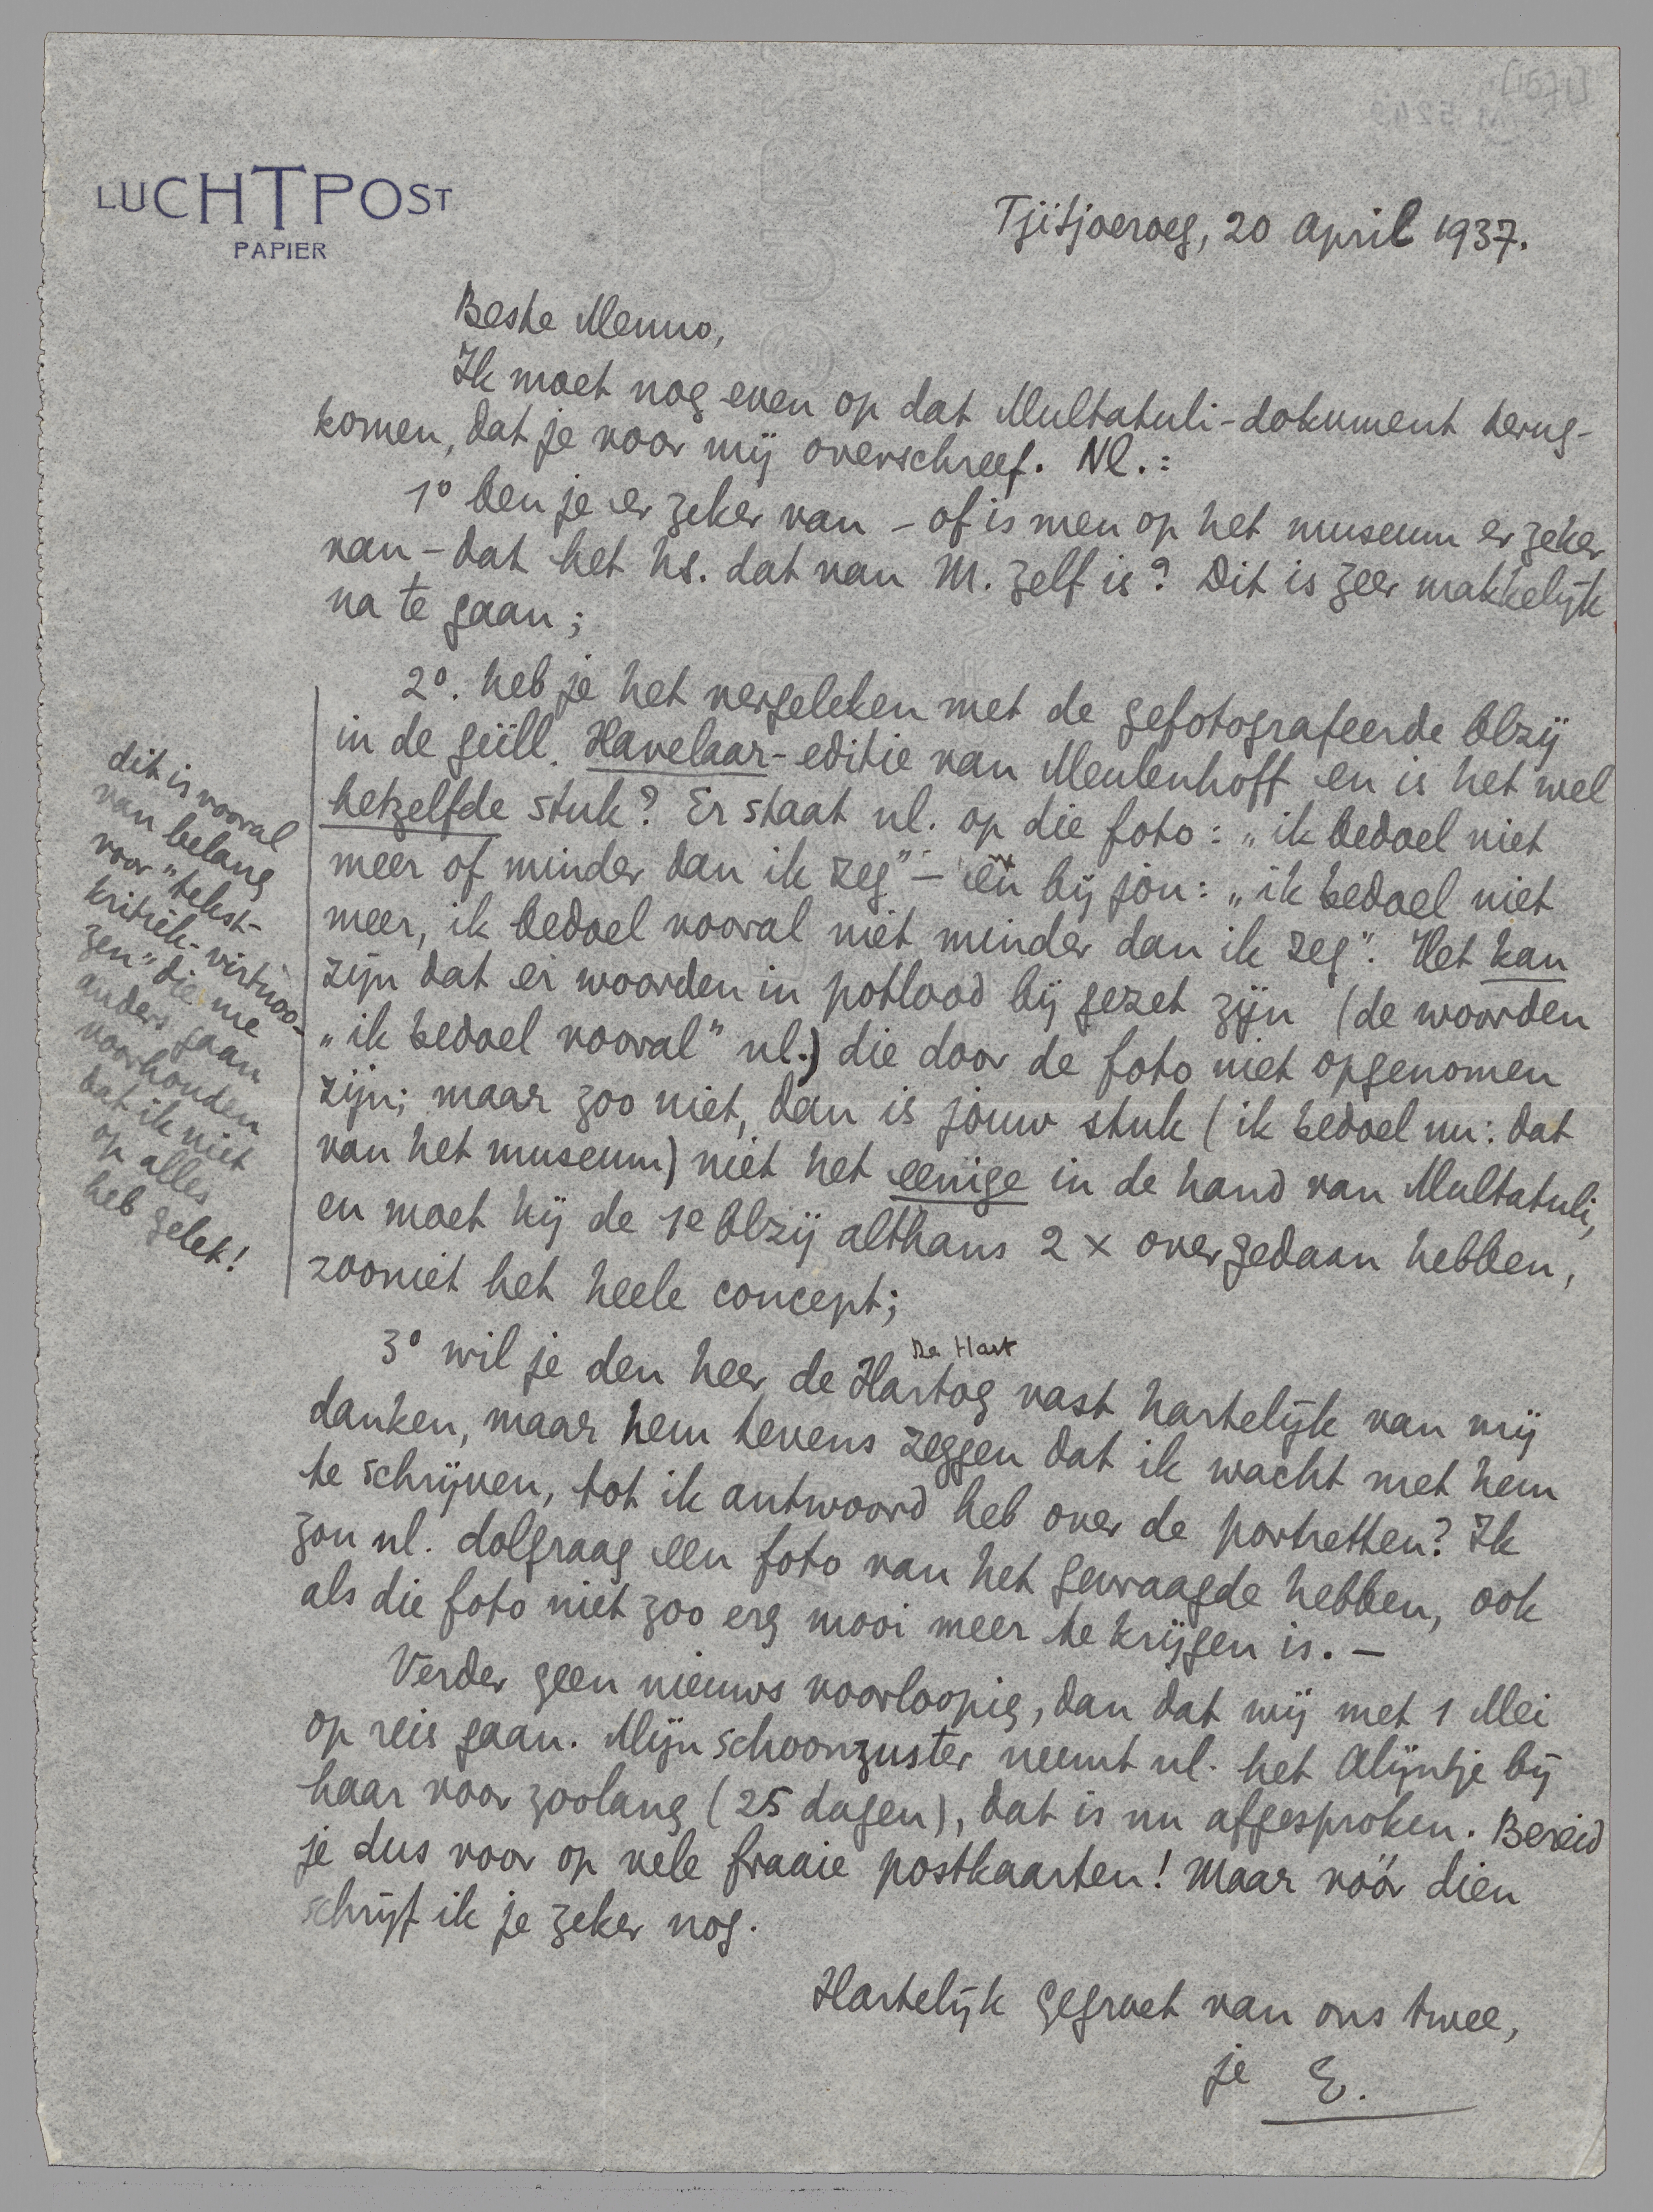 LUCHTPOST
PAPIER
Tjitjoeroeg, 20 April 1937.
Beste Menno,
Ik moet nog even op dat Multatuli-dokument terug-
komen, dat je voor mij overschreef. Nl.:
1º ben je er zeker van – of is men op het museum er zeker
van – dat het hs. dat van M. zelf is? Dit is zeer makkelijk
na te gaan;
2º. heb je het vergeleken met de gefotografeerde blzij
in de geïll. Havelaar-editie van Meulenhoff en is het wel
hetzelfde stuk? Er staat nl. op die foto: „ik bedoel niet
meer of minder dan ik zeg" – en bij jou: „ik bedoel niet
meer, ik bedoel vooral niet minder dan ik zeg". Het kan
zijn dat er woorden in potlood bij gezet zijn (de woorden
„ik bedoel vooral" nl.) die door de foto niet opgenomen
zijn; maar zoo niet, dan is jouw stuk (ik bedoel nu: dat
van het museum) niet het eenige in de hand van Multatuli,
en moet hij de 1e blzij althans 2 x overgedaan hebben,
zooniet het heele concept;
dit is vooral
van belang
voor „tekst-
kritiek-virtuoo-
zen" die me
anders gaan
voorhouden
dat ik niet
op alles
heb gelet!
De Hart
3º wil je den heer de Hartog vast hartelijk van mij
danken, maar hem tevens zeggen dat ik wacht met hem
te schrijven, tot ik antwoord heb over de portretten? Ik
zou nl. dolgraag een foto van het gevraagde hebben, ook
als die foto niet zoo erg mooi meer te krijgen is. –
Verder geen nieuws voorloopig, dan dat wij met 1 Mei
op reis gaan. Mijn schoonzuster neemt nl. het Alijntje bij
haar voor zoolang (25 dagen), dat is nu afgesproken. Bereid
je dus voor op vele fraaie postkaarten! Maar vóór dien
schrijf ik je zeker nog.
Hartelijk gegroet van ons twee,
je E.